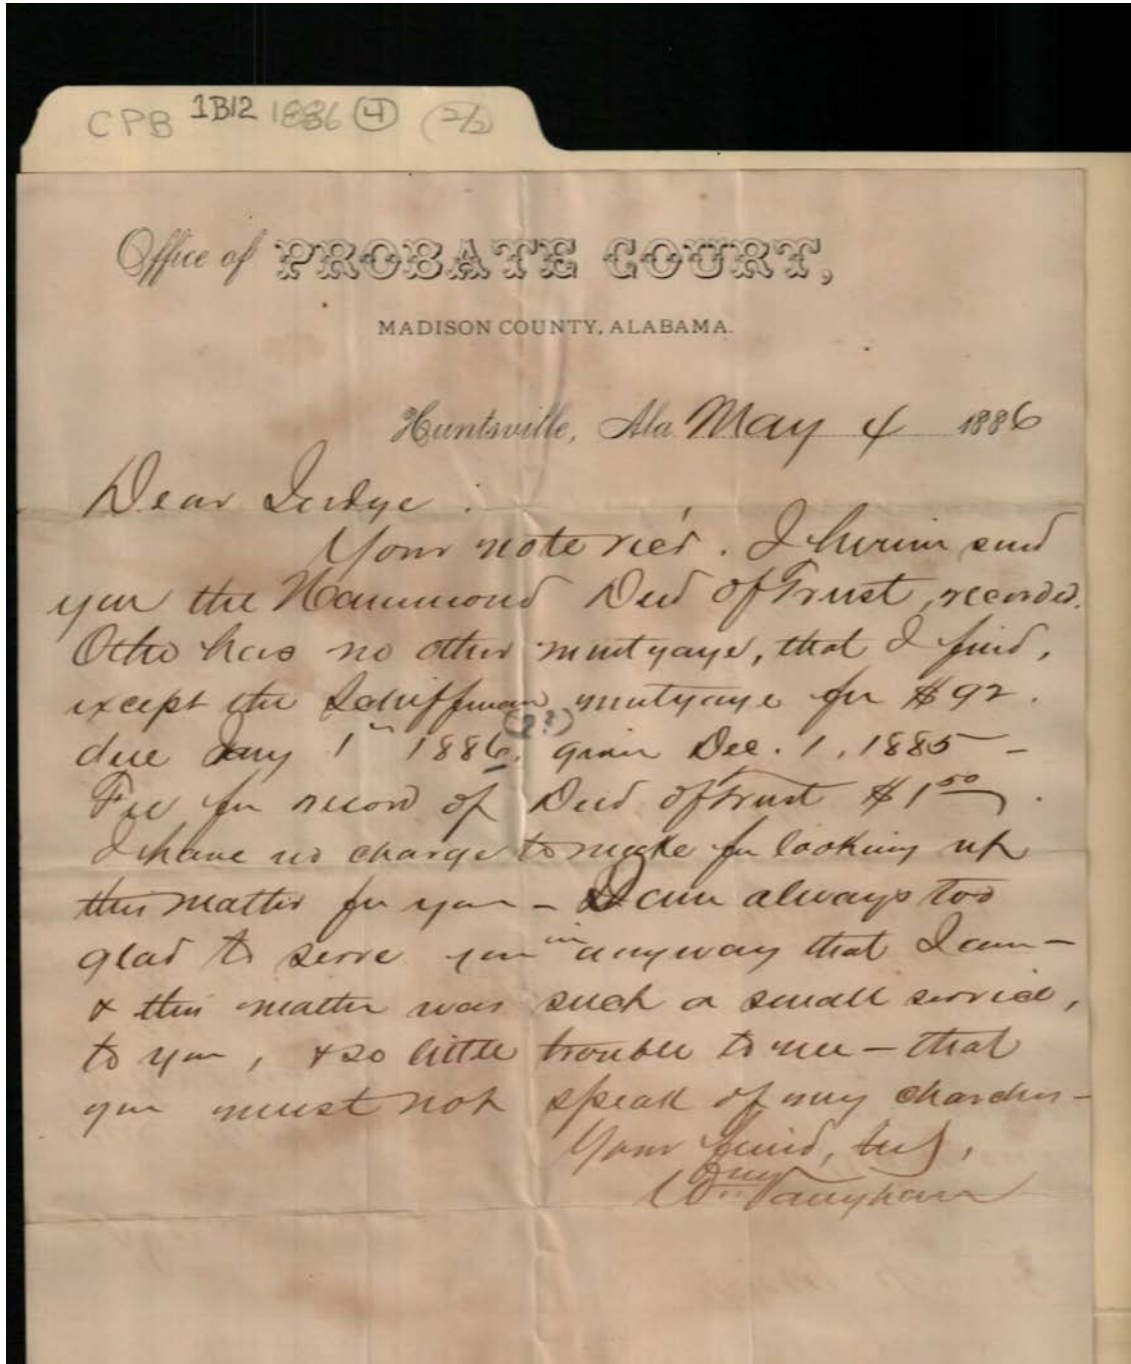 CPB 1B12 1886 (4) (2/2)
Office of PROBATE COURT,
MADISON COUNTY, ALABAMA.
Huntsville, Ala May 4 1886
Dear Judge :
Your note rec'd. I herein send
you the Hammond Deed of Trust, recorded.
Otho has no other mortgage, that I find,
except the Schiffman mortgage for $92.
(2?)
due Jany 1st 1886, given Dec. 1, 1885 –
Fee for record of Deed of Trust $1 50.
I have no charge to make for looking up
this matter for you – I am always too
glad to serve you in anyway that I can –
& this matter was such a small service,
to you, & so little trouble to me – that
you must not speak of my charges –
Your friend,
Wm Vaughan